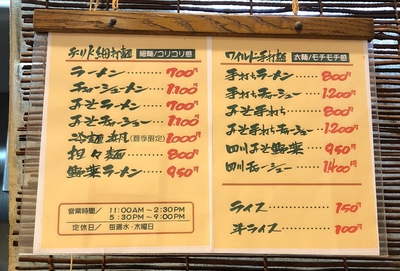 デリバ細打麺 細麺/コリコリ感
ラーメン………700円
チャーシューメン……1100円
みそラーメン……700円
みそチャーシュー……1100円
冷麺 (夏季限定) 1000円
担々麺…………800円
野菜ラーメン……950円
営業時間/ 11:00AM~2:30PM
5:30PM~9:00PM
定休日/ 毎週水・木曜日
ワイルド手打麺 太麺/モチモチ感
手打ちラーメン……800円
手打ちチャーシュー…1200円
みそ手打ち………800円
みそ手打ちチャーシュー…1200円
四川みそ野菜……950円
四川チャーシュー……1400円
ライス……………150円
半ライス…………100円